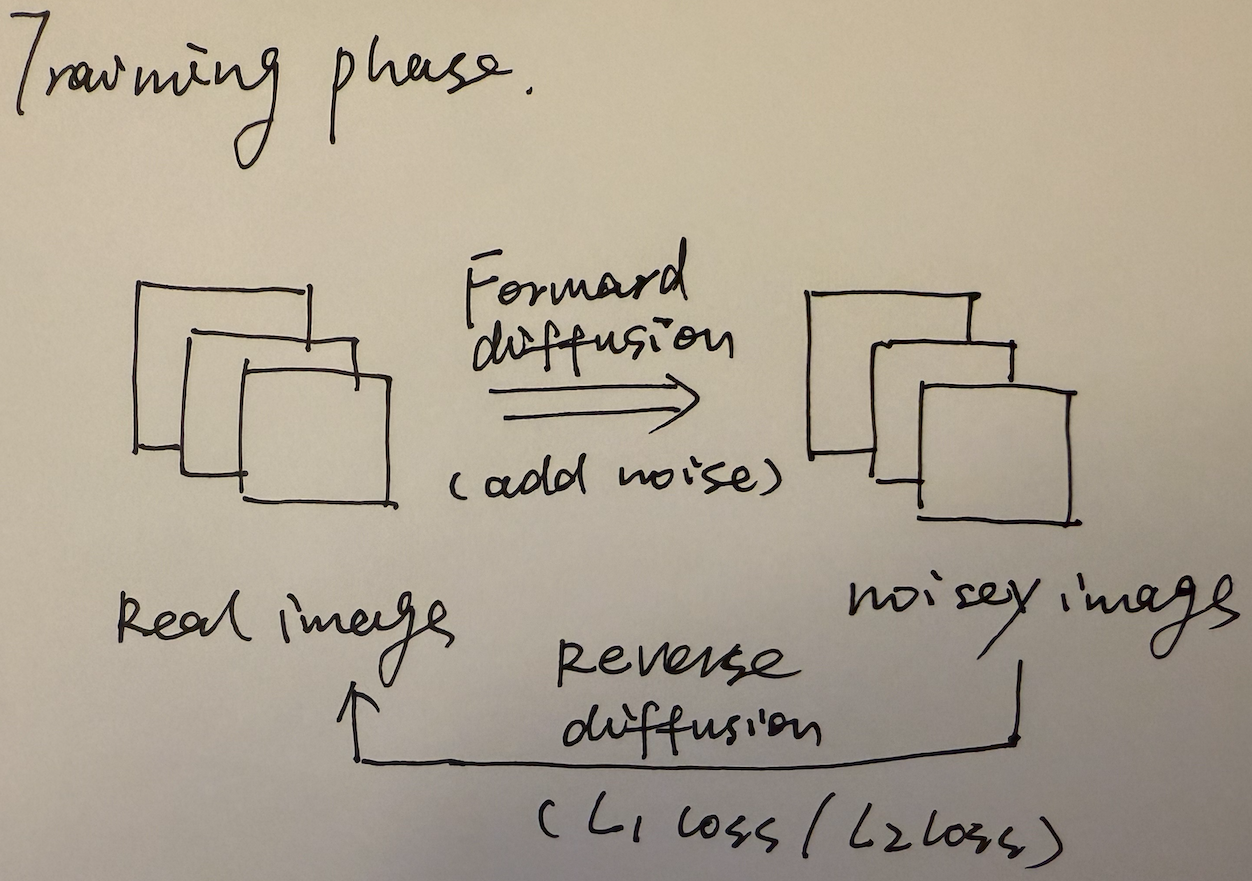 Training phase.
Forward
diffusion
(add noise)
Real image
noisey image
Reverse
diffusion
(L1 loss / L2 loss)